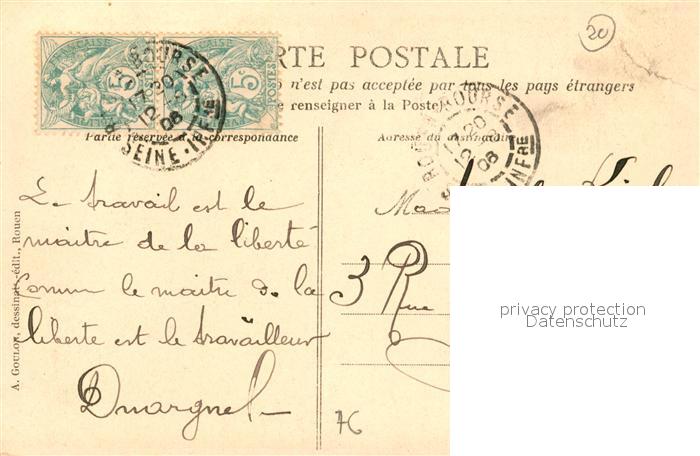 20
RTE POSTALE
n'est pas acceptée par tous les pays étrangers
e renseigner à la Poste
Partie réservée à la correspondance
Adresse du destinataire
BOURSE
17 20
06
SEINE-INFRE
BOURSE
17 20
06
INFRE
5
5
POSTES
Le travail est le
maitre de la liberté
Comme le maitre de la
liberte est le travailleur
3 Rue
A. GOULON, dessinat.-édit., Rouen
76
privacy protection
Datenschutz